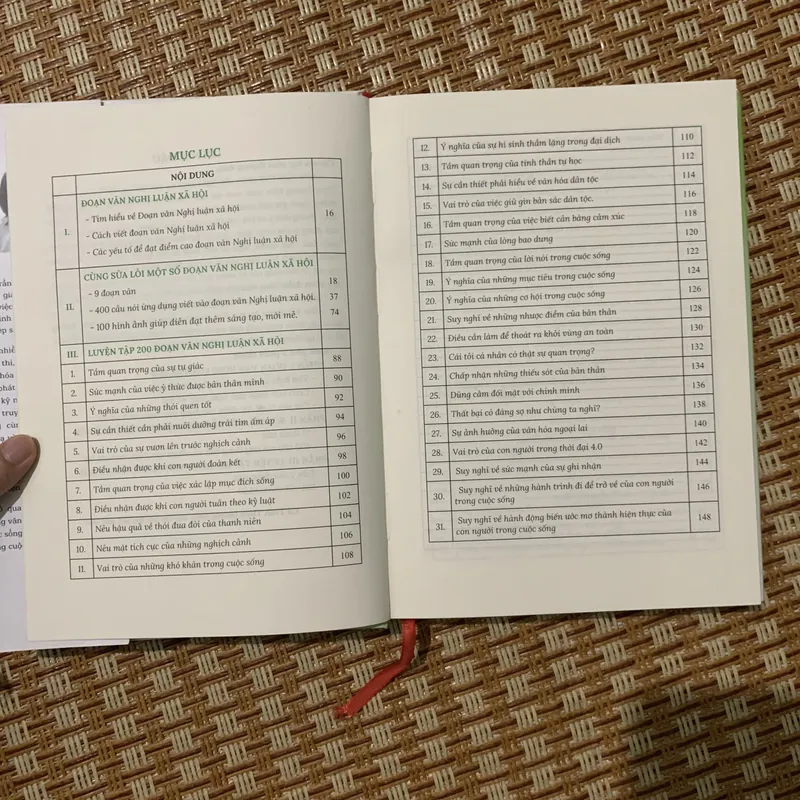 MỤC LỤC
NỘI DUNG
I.
ĐOẠN VĂN NGHỊ LUẬN XÃ HỘI
- Tìm hiểu về Đoạn văn Nghị luận xã hội
- Cách viết đoạn văn Nghị luận xã hội
- Các yếu tố để đạt điểm cao đoạn văn Nghị luận xã hội
16
II.
CÙNG SỬA LỖI MỘT SỐ ĐOẠN VĂN NGHỊ LUẬN XÃ HỘI
- 9 đoạn văn 18
- 400 câu nói ứng dụng viết vào đoạn văn Nghị luận xã hội. 37
- 100 hình ảnh giúp diễn đạt thêm sáng tạo, mới mẻ. 74
III. LUYỆN TẬP 200 ĐOẠN VĂN NGHỊ LUẬN XÃ HỘI
1. Tầm quan trọng của sự tự giác 88
2. Sức mạnh của việc ý thức được bản thân mình 90
3. Ý nghĩa của những thói quen tốt 92
4. Sự cần thiết cần phải nuôi dưỡng trái tim ấm áp 94
5. Vai trò của sự vươn lên trước nghịch cảnh 96
6. Điều nhận được khi con người đoàn kết 98
7. Tầm quan trọng của việc xác lập mục đích sống 100
8. Điều nhận được khi con người tuân theo kỷ luật 102
9. Nêu hậu quả về thói đua đòi của thanh niên 104
10. Nêu mặt tích cực của những nghịch cảnh 106
11. Vai trò của những khó khăn trong cuộc sống 108
12. Ý nghĩa của sự hi sinh thầm lặng trong đại dịch 110
13. Tầm quan trọng của tinh thần tự học 112
14. Sự cần thiết phải hiểu về văn hóa dân tộc 114
15. Vai trò của việc giữ gìn bản sắc dân tộc. 116
16. Tầm quan trọng của việc biết cân bằng cảm xúc 118
17. Sức mạnh của lòng bao dung 120
18. Tầm quan trọng của lời nói trong cuộc sống 122
19. Ý nghĩa của những mục tiêu trong cuộc sống 124
20. Ý nghĩa của những cơ hội trong cuộc sống 126
21. Suy nghĩ về những nhược điểm của bản thân 128
22. Điều cần làm để thoát ra khỏi vùng an toàn 130
23. Cái tôi cá nhân có thật sự quan trọng? 132
24. Chấp nhận những thiếu sót của bản thân 134
25. Dũng cảm đối mặt với chính mình 136
26. Thất bại có đáng sợ như chúng ta nghĩ? 138
27. Sự ảnh hưởng của văn hóa ngoại lai 140
28. Vai trò của con người trong thời đại 4.0 142
29. Suy nghĩ về sức mạnh của sự ghi nhận 144
30. Suy nghĩ về những hành trình đi để trở về của con người
trong cuộc sống 146
31. Suy nghĩ về hành động biến ước mơ thành hiện thực của
con người trong cuộc sống 148